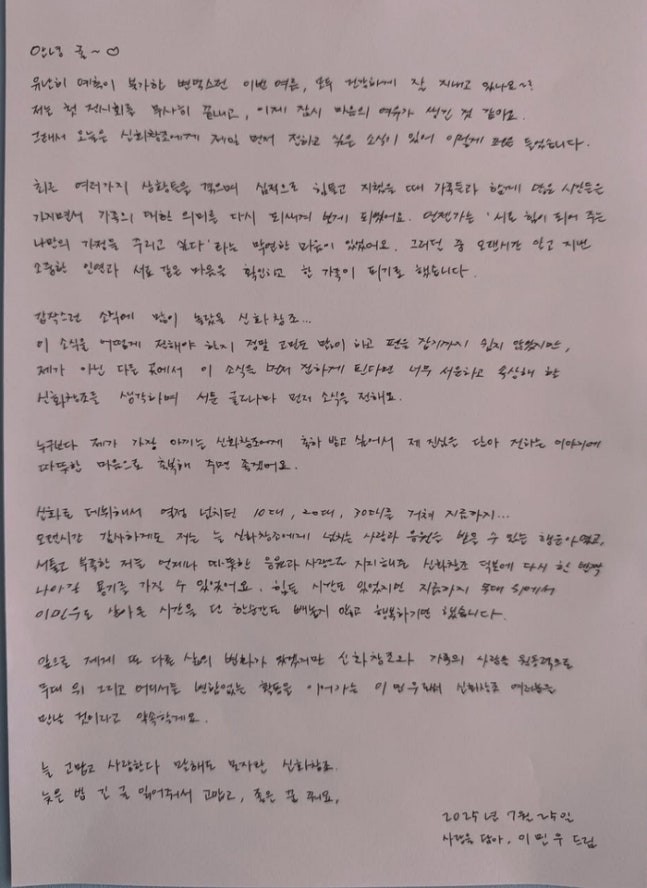 안녕 귤~♡
유난히 예측이 불가한 변덕스런 이번 여름, 모두 건강하게 잘 지내고 있나요~?
저는 첫 전시회를 무사히 끝내고, 이제 잠시 마음의 여유가 생긴 것 같아요.
그래서 오늘은 신화창조에게 제일 먼저 전하고 싶은 소식이 있어 이렇게 펜을 들었습니다.
최근 여러가지 상황들을 겪으며 심적으로 힘들고 지쳤을 때 가족들과 함께 많은 시간들을
가지면서 가족의 대한 의미를 다시 되새기게 되었어요. 언젠가는 '서로 힘이 되어 주는
나만의 가정을 꾸리고 싶다'라는 막연한 마음이 있었어요. 그러던 중 오랜시간 알고 지낸
소중한 인연과 서로 같은 마음을 확인하고 한 가족이 되기로 했습니다.
갑작스런 소식에 많이 놀랐을 신화창조...
이 소식을 어떻게 전해야 할지 정말 고민도 많이 하고 펜을 잡기까지 쉽지 않았지만,
제가 아닌 다른 곳에서 이 소식을 먼저 접하게 된다면 너무 서운하고 속상해 할
신화창조를 생각하며 서툰 글로나마 먼저 소식을 전해요.
누구보다 제가 가장 아끼는 신화창조에게 축하 받고 싶어서 제 진심을 담아 전하는 이야기에
따뜻한 마음으로 축복해 주면 좋겠어요.
신화로 데뷔해서 열정 넘치던 10대, 20대, 30대를 거쳐 지금까지...
오랜시간 감사하게도 저는 늘 신화창조에게 넘치는 사랑과 응원을 받을 수 있는 행운아였고,
서툴고 부족한 저를 언제나 따뜻한 응원과 사랑으로 지지해준 신화창조 덕분에 다시 한 번
나아갈 용기를 가질 수 있었어요. 힘든 시간도 있었지만 지금까지 무대 위에서
이민우로 살아온 시간을 단 한순간도 빼놓지 않고 행복하기만 했습니다.
앞으로 제게 또 다른 삶의 변화가 있겠지만 신화창조와 가족의 사랑을 원동력으로
무대 위 그리고 어디서든 변함없는 활동을 이어가는 이민우로 신화창조 여러분을
만날 것이라고 약속할게요.
늘 고맙고 사랑한다 말해도 모자란 신화창조.
늦은 밤 긴 글 읽어줘서 고맙고, 좋은 꿈 꿔요,
2025년 7월 25일
사랑을 담아, 이민우 드림